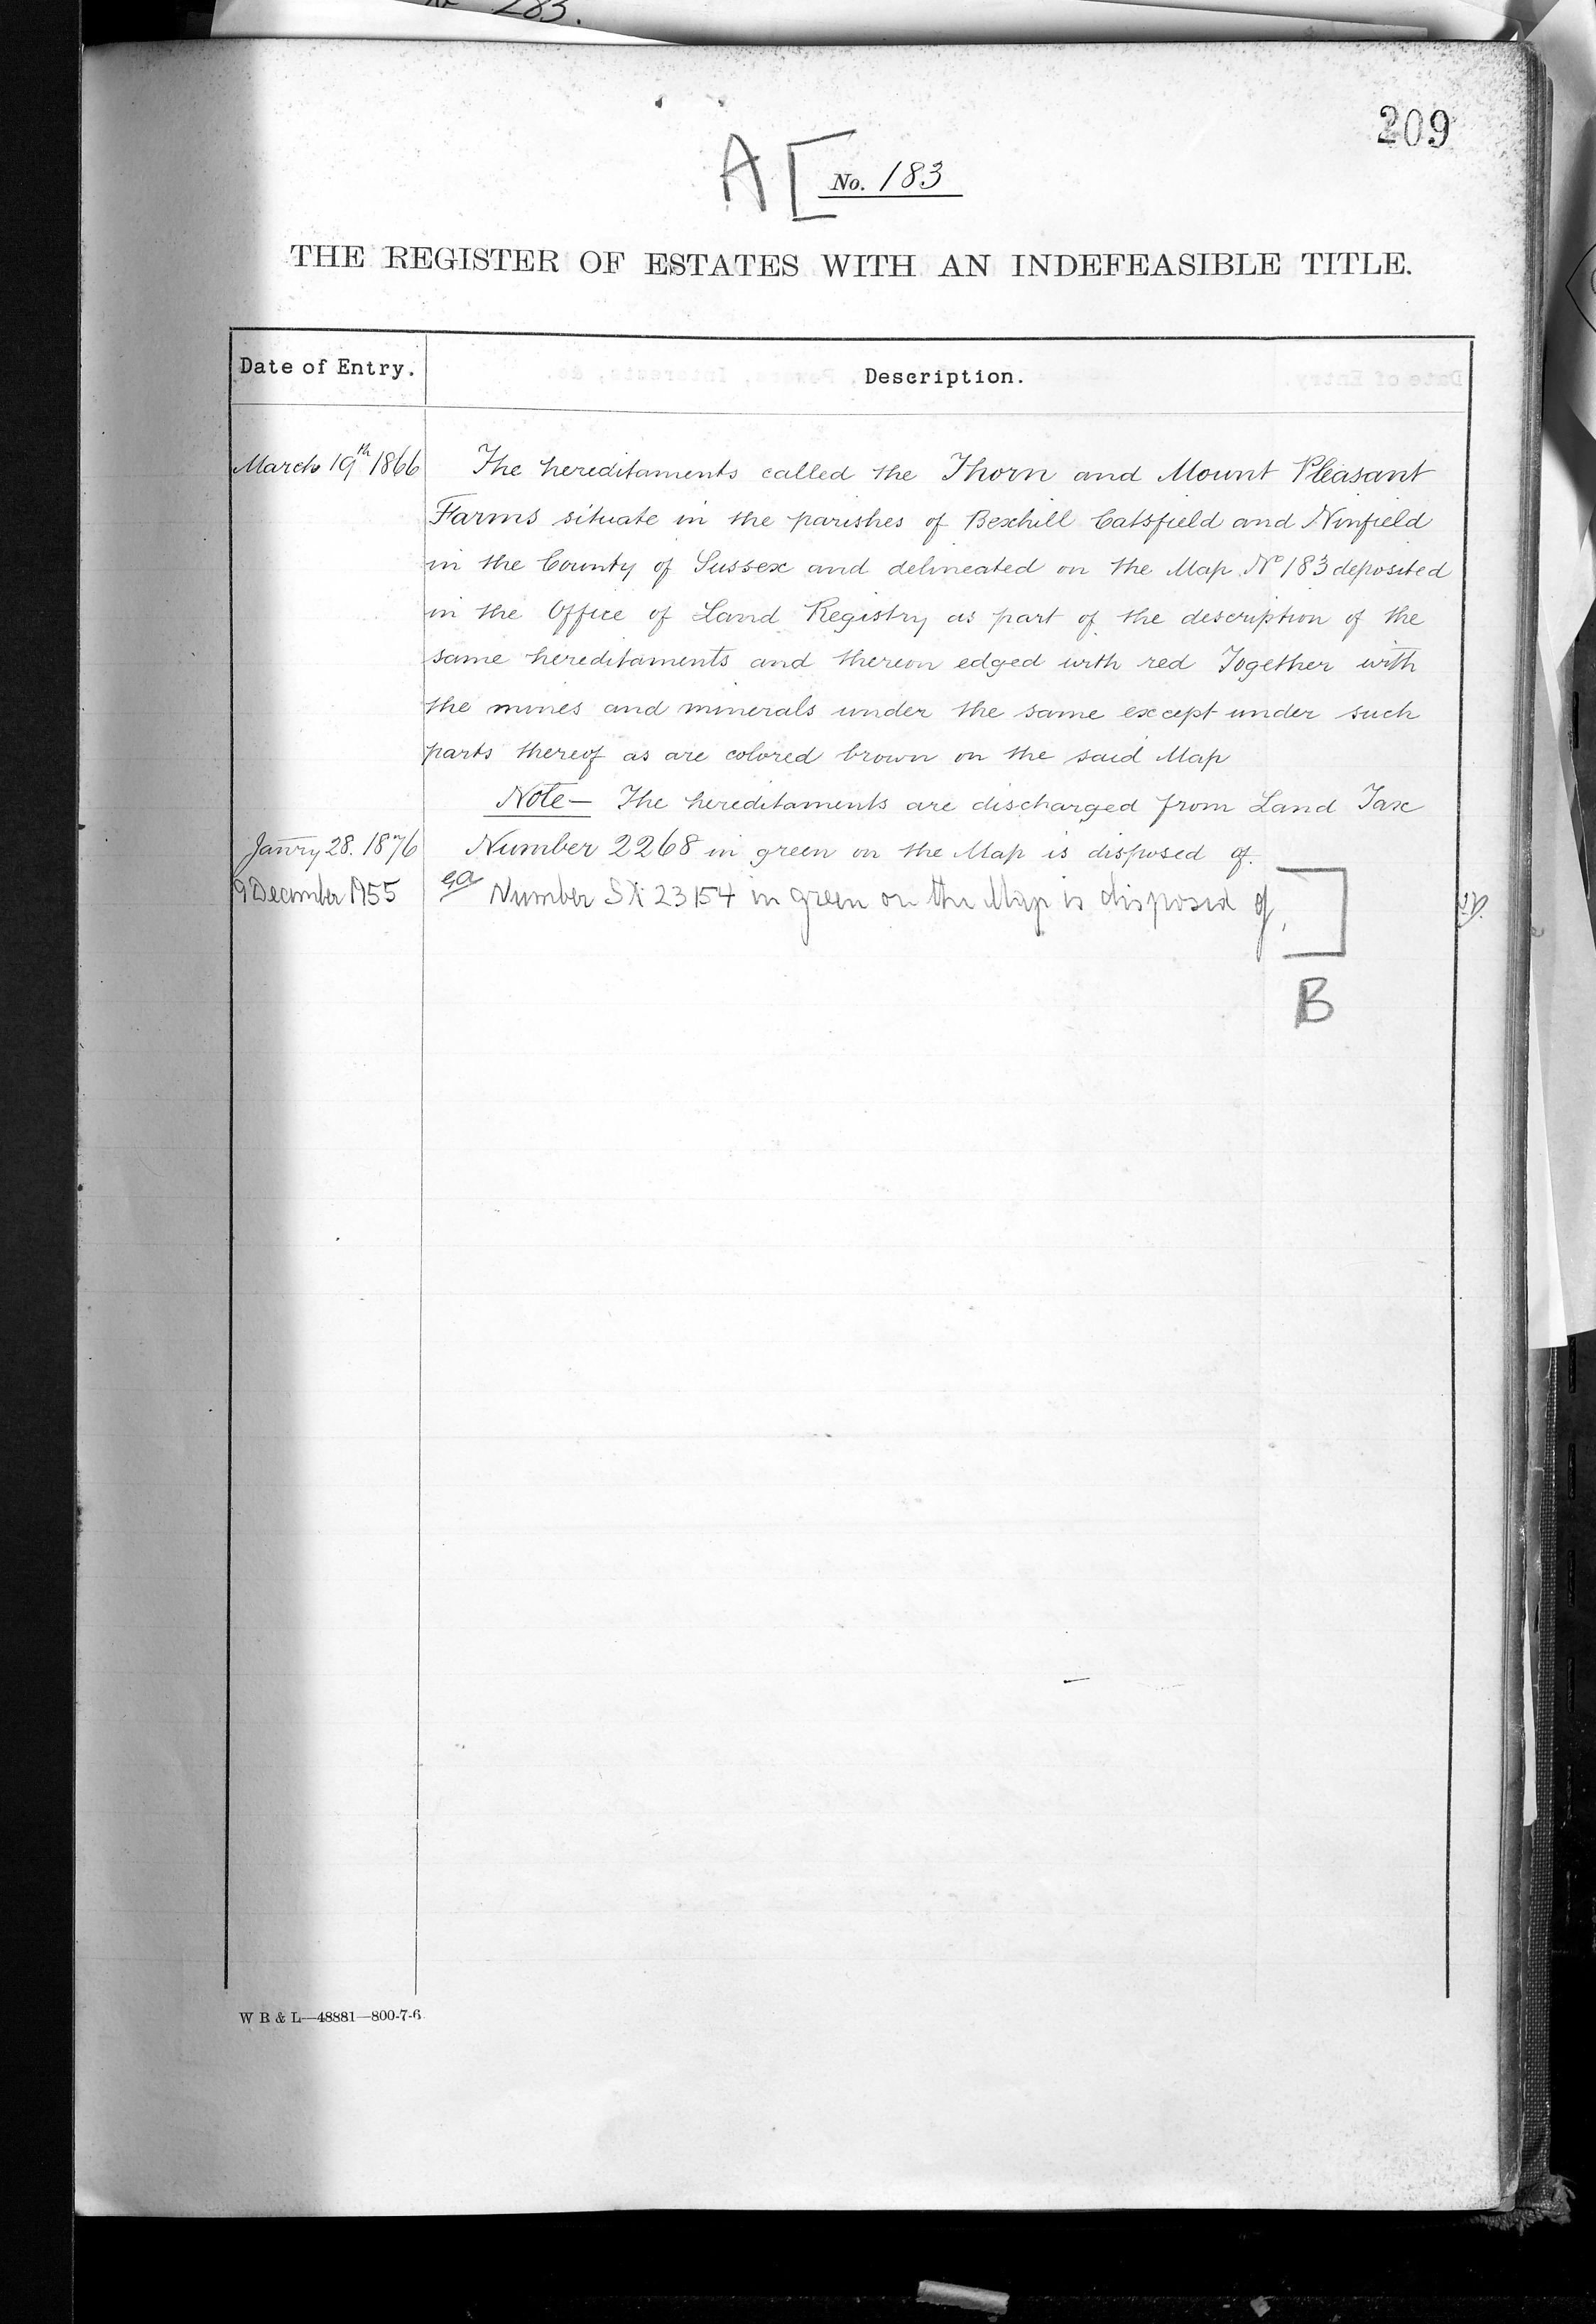 No 283.
209
A [ No. 183
THE REGISTER OF ESTATES WITH AN INDEFEASIBLE TITLE.
Date of Entry. Description.
March 19th 1866 The hereditaments called the Thorn and Mount Pleasant
Farms situate in the parishes of Bexhill Catsfield and Ninfield
in the County of Sussex and delineated on the Map No 183 deposited
in the Office of Land Registry as part of the description of the
same hereditaments and thereon edged with red Together with
the mines and minerals under the same except under such
parts thereof as are colored brown on the said Map
Note— The hereditaments are discharged from Land Tax
Janry 28. 1876 Number 2268 in green on the Map is disposed of.
9 December 1955 Number SX 23154 in green on the Map is disposed of. ]
B
W B & L—48881—800-7-6